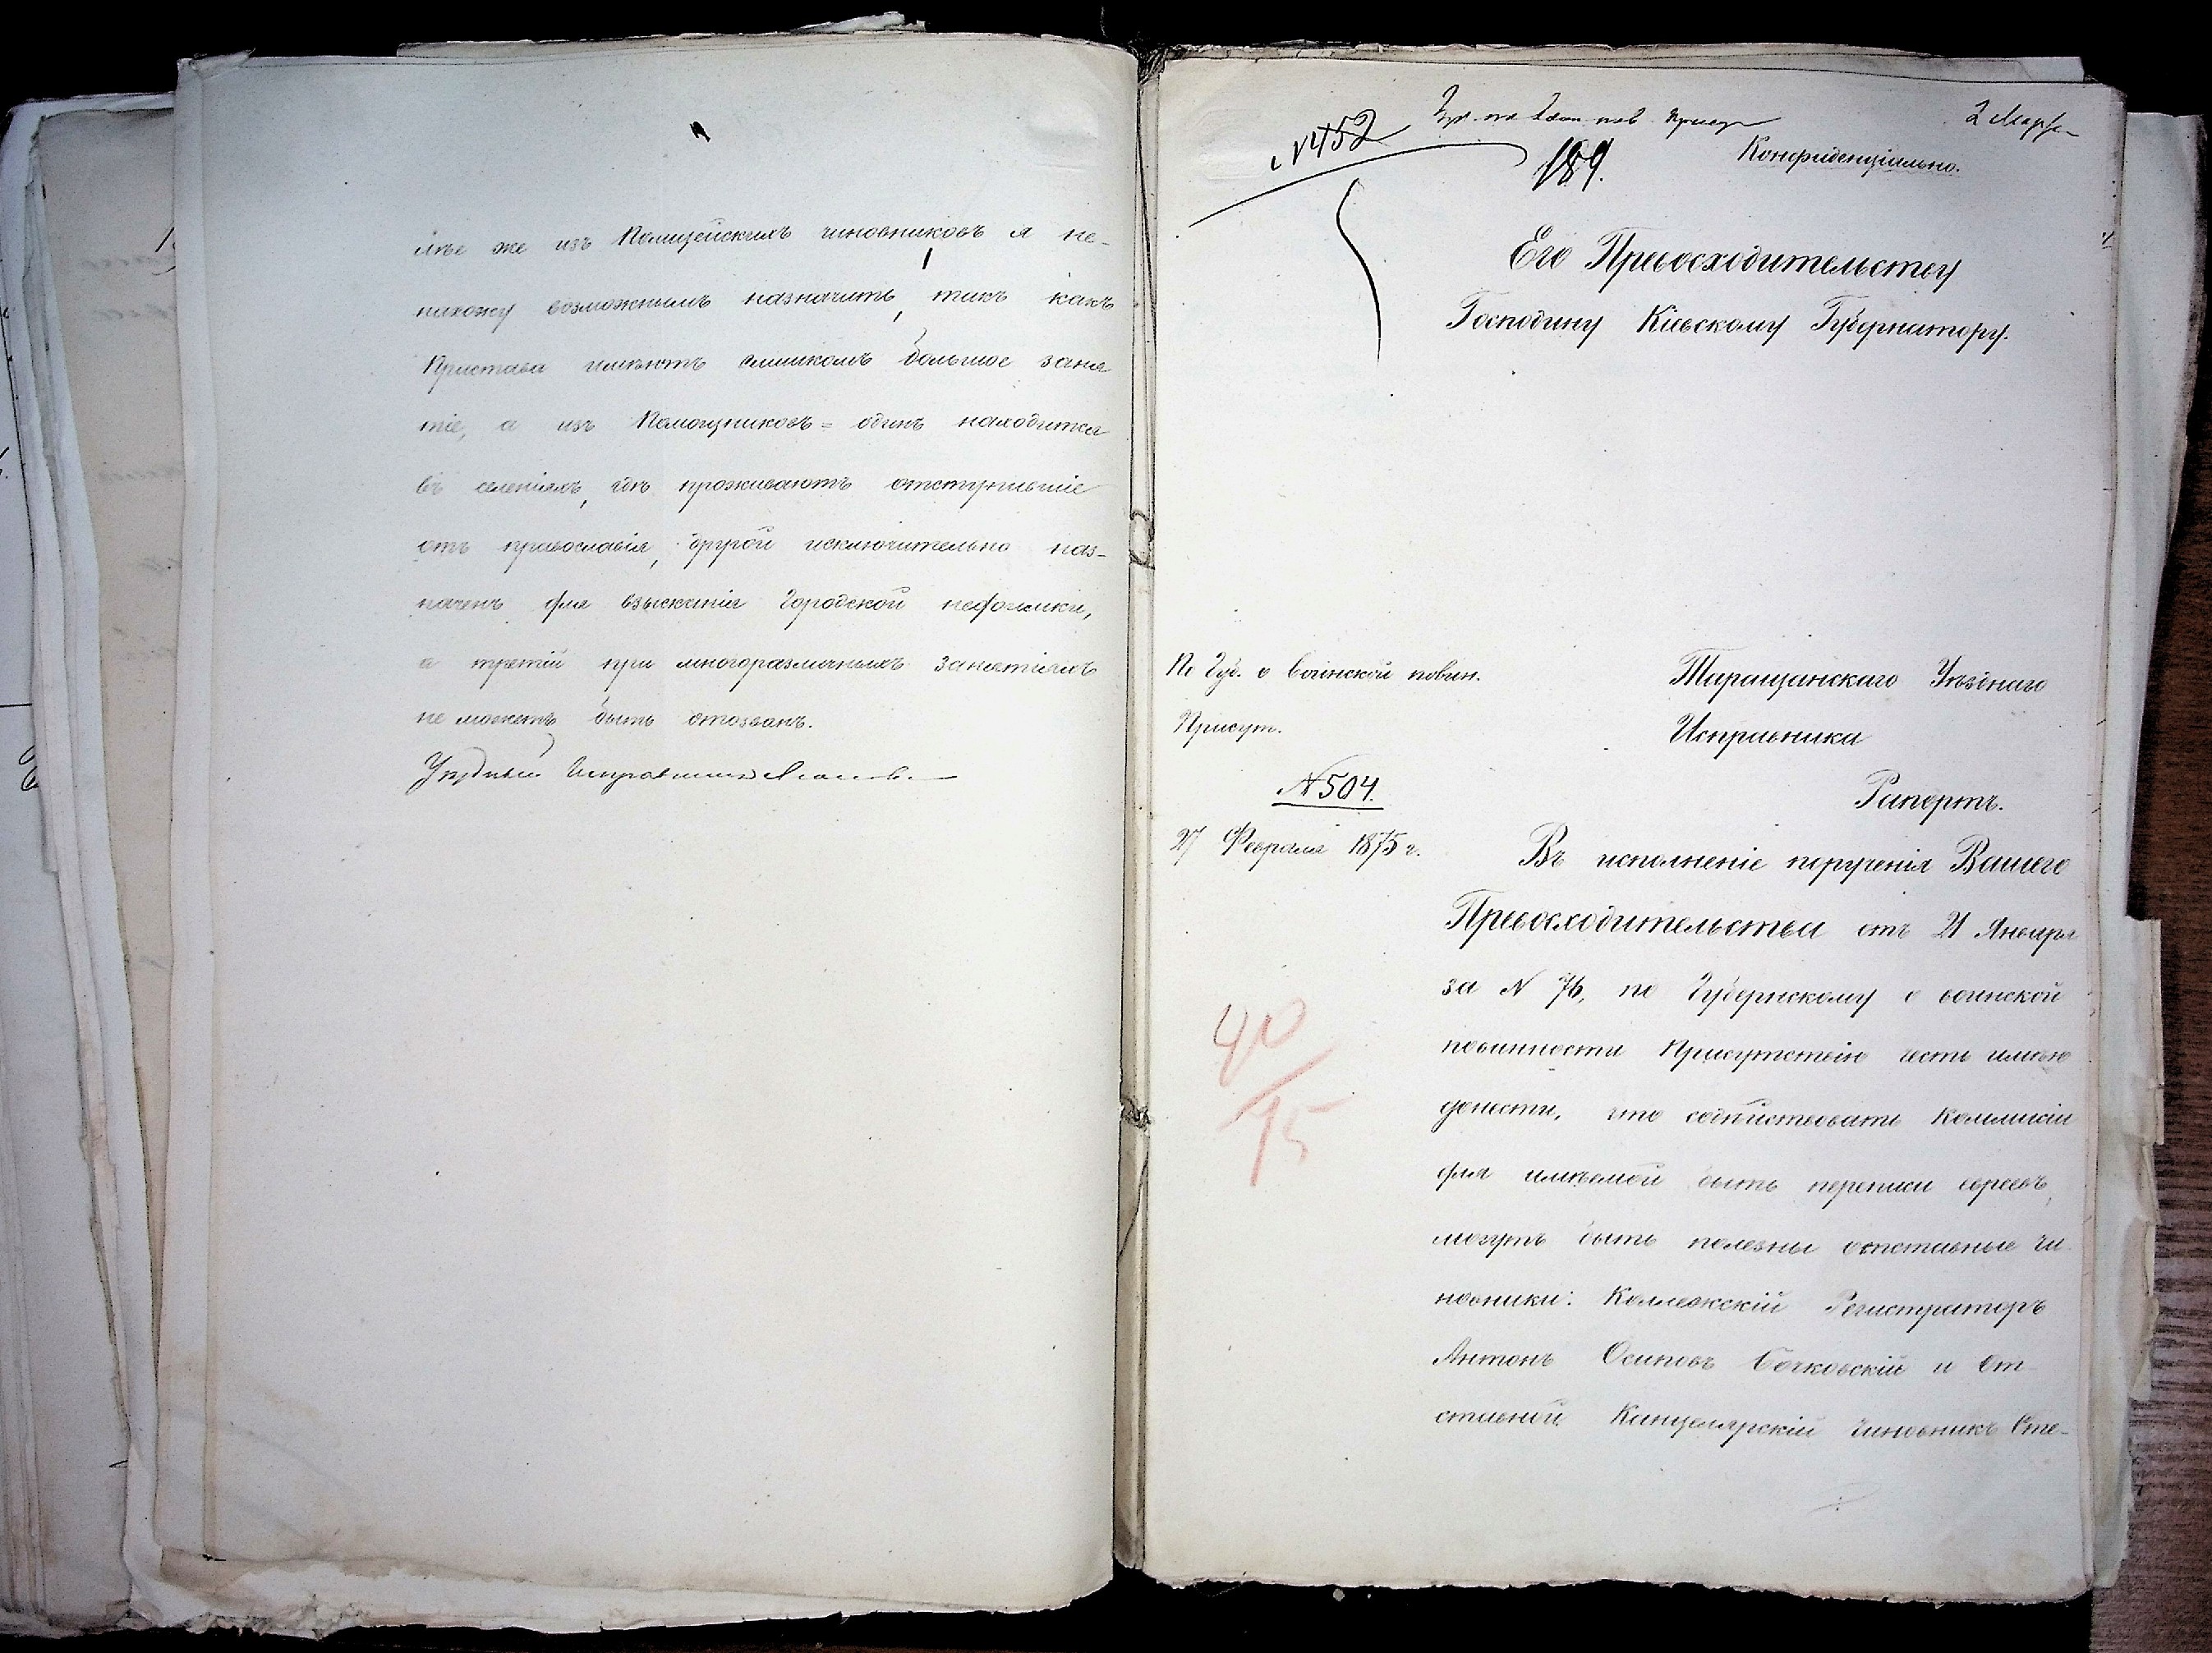 иnѣе же изъ Полицейскихъ чиновниковъ я не-
нахожу возможнымъ назначить, такъ какъ
Пристава имѣютъ слишкомъ большое заня
тіе, а изъ Помощниковъ = одинъ находится
въ селеніяхъ, гдѣ проживаютъ отступившіе
отъ православія, другой исключительно наз-
наченъ для взысканія Городской недоимки,
а третій при многоразличныхъ занятіяхъ
не можетъ быть отозванъ.
Уѣздный Исправникъ
№452
2 Марта
189.
Конфиденціально.
Его Превосходительству
Господину Кіевскому Губернатору.
По Губ. о воинской повин.
Присут.
№504.
27 Февраля 1875 г.
40
75
Таращанскаго Уѣзднаго
Исправника
Рапортъ.
Въ исполненіе порученія Вашего
Превосходительства отъ 21 Января
за № 76, по Губернскому о воинской
повинности Присутствію честь имѣю
донести, что содѣйствовать Коммисіи
для имѣемой быть переписи евреевъ,
могутъ быть полезны отставные чи-
новники: Коллежскій Регистраторъ
Антонъ Осиповъ Бочковскій и От-
ставной Канцелярскій чиновникъ Сте-